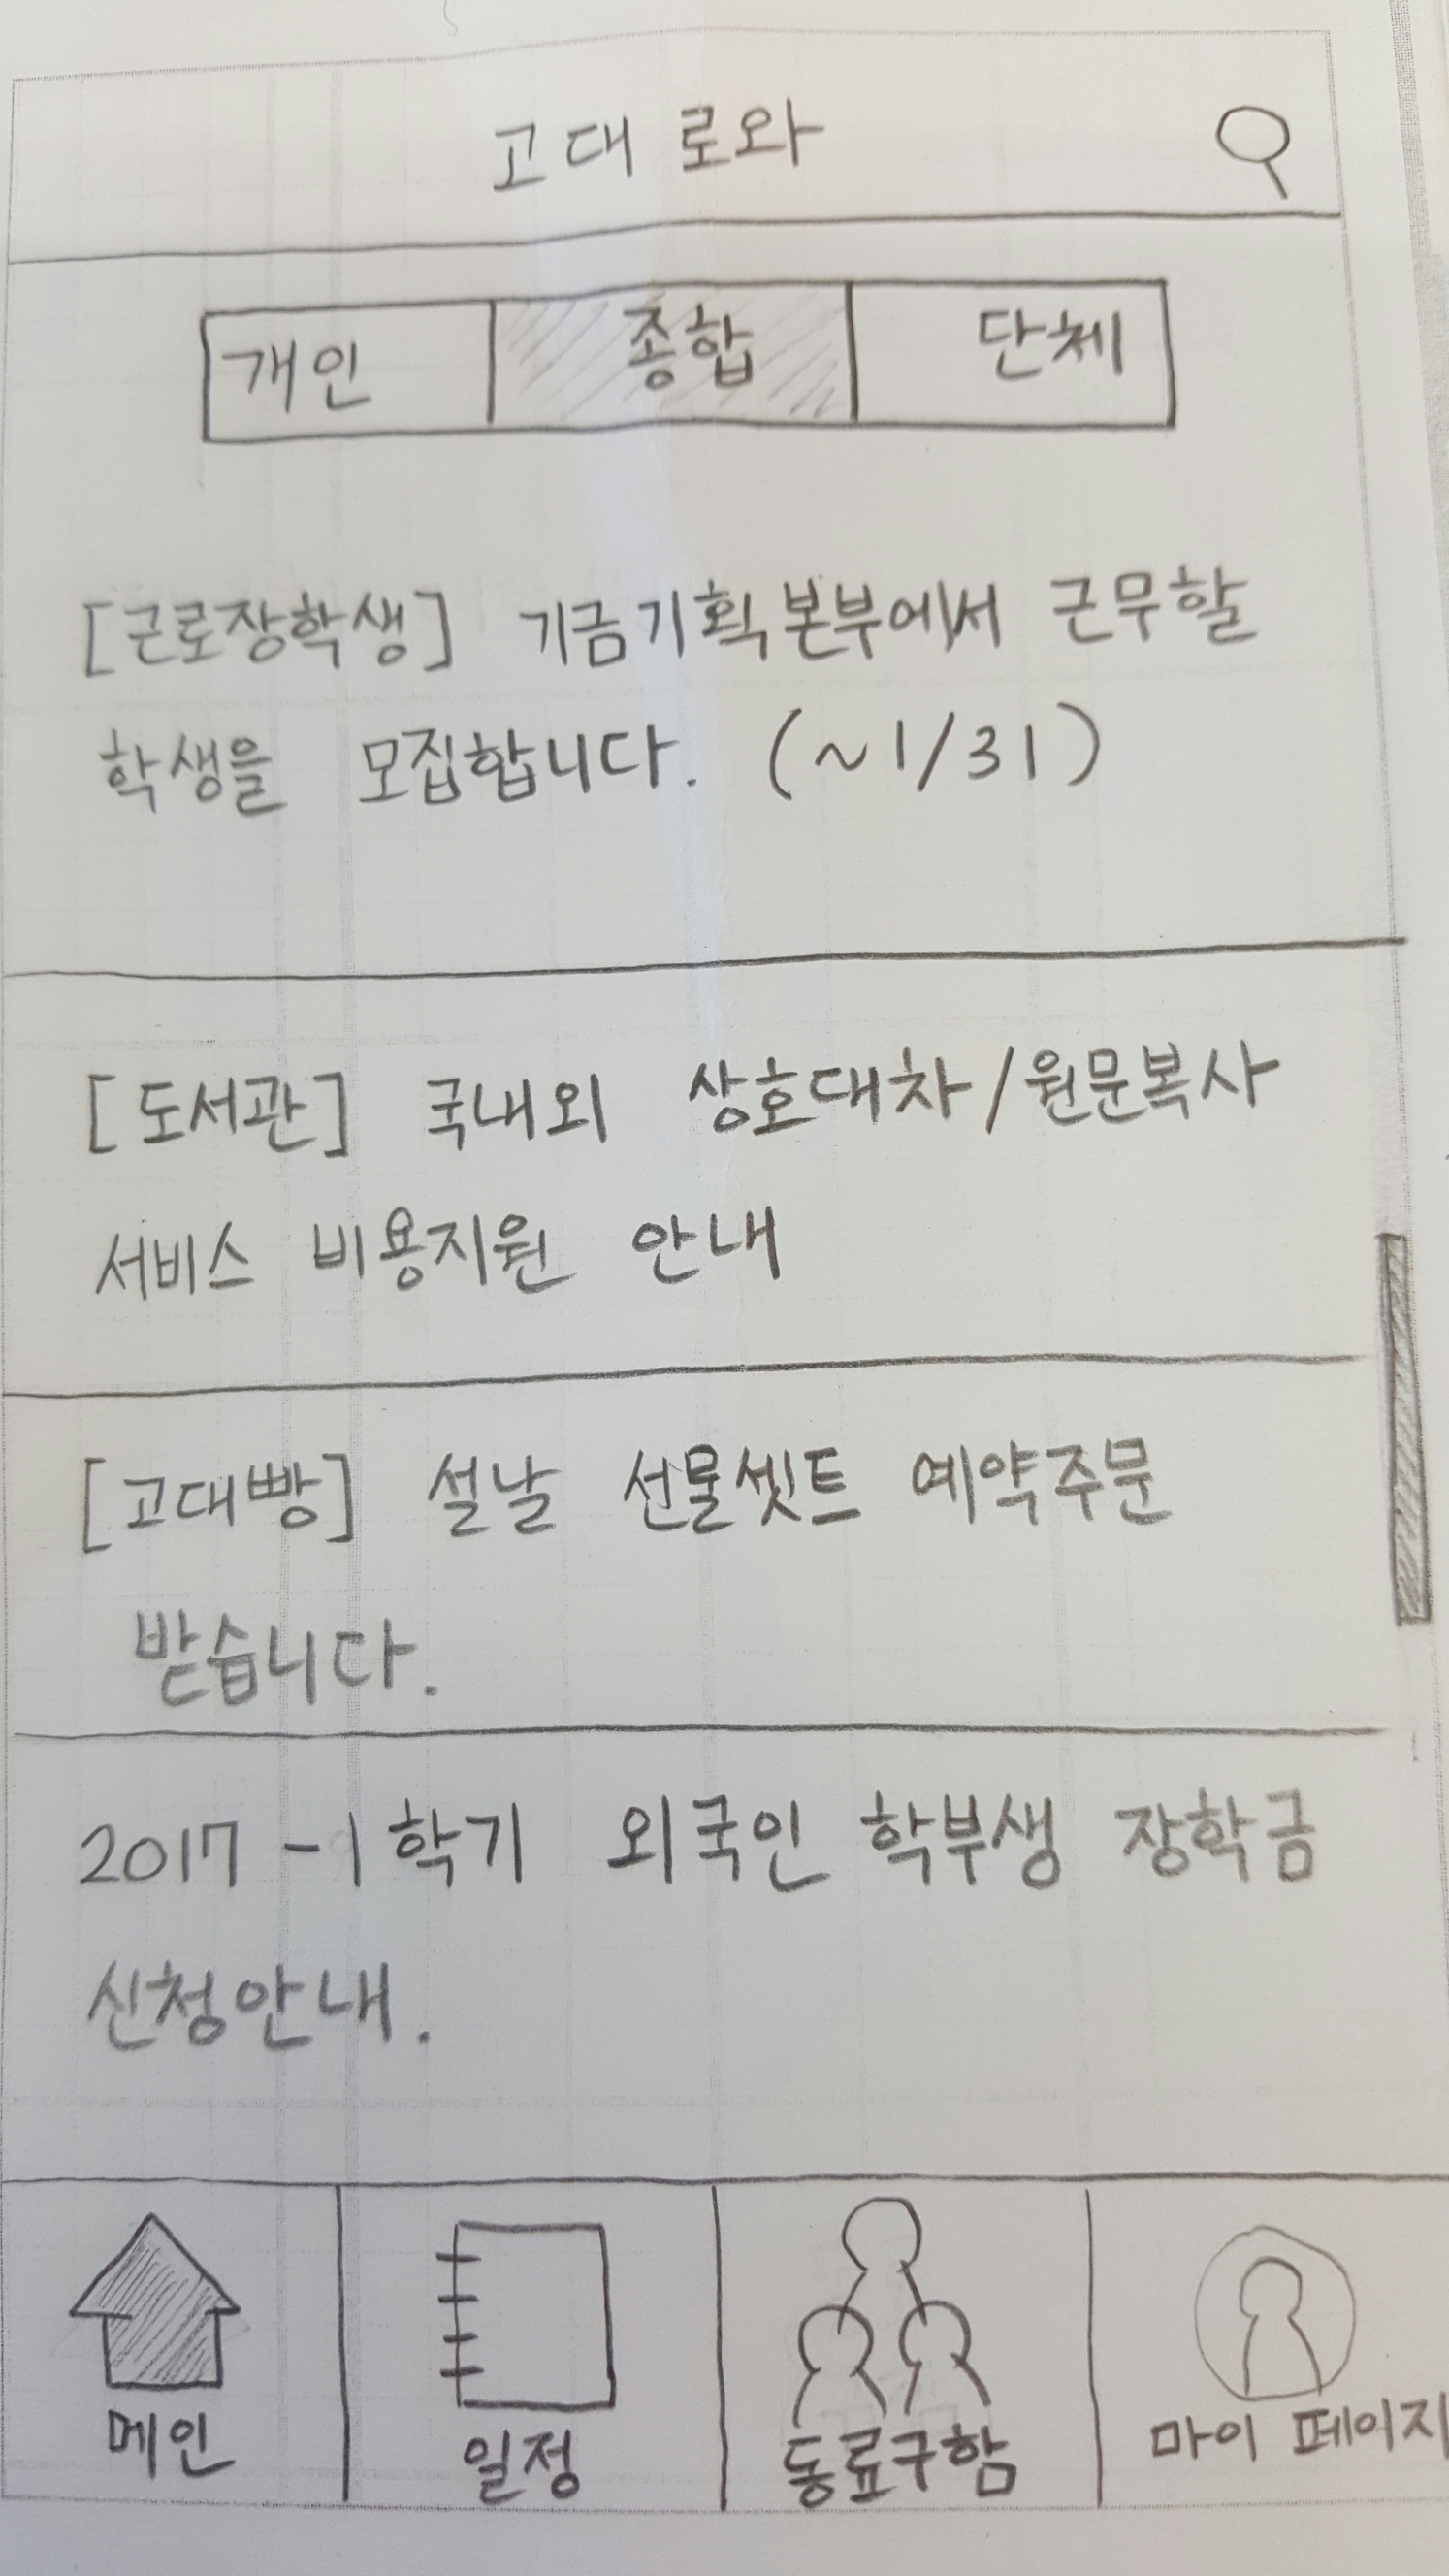 고대 로와
개인 종합 단체
[근로장학생] 기금기획본부에서 근무할
학생을 모집합니다. (~1/31)
[도서관] 국내외 상호대차/원문복사
서비스 비용지원 안내
[고대빵] 설날 선물셋트 예약주문
받습니다.
2017-1학기 외국인 학부생 장학금
신청안내.
메인 일정 동료구함 마이 페이지